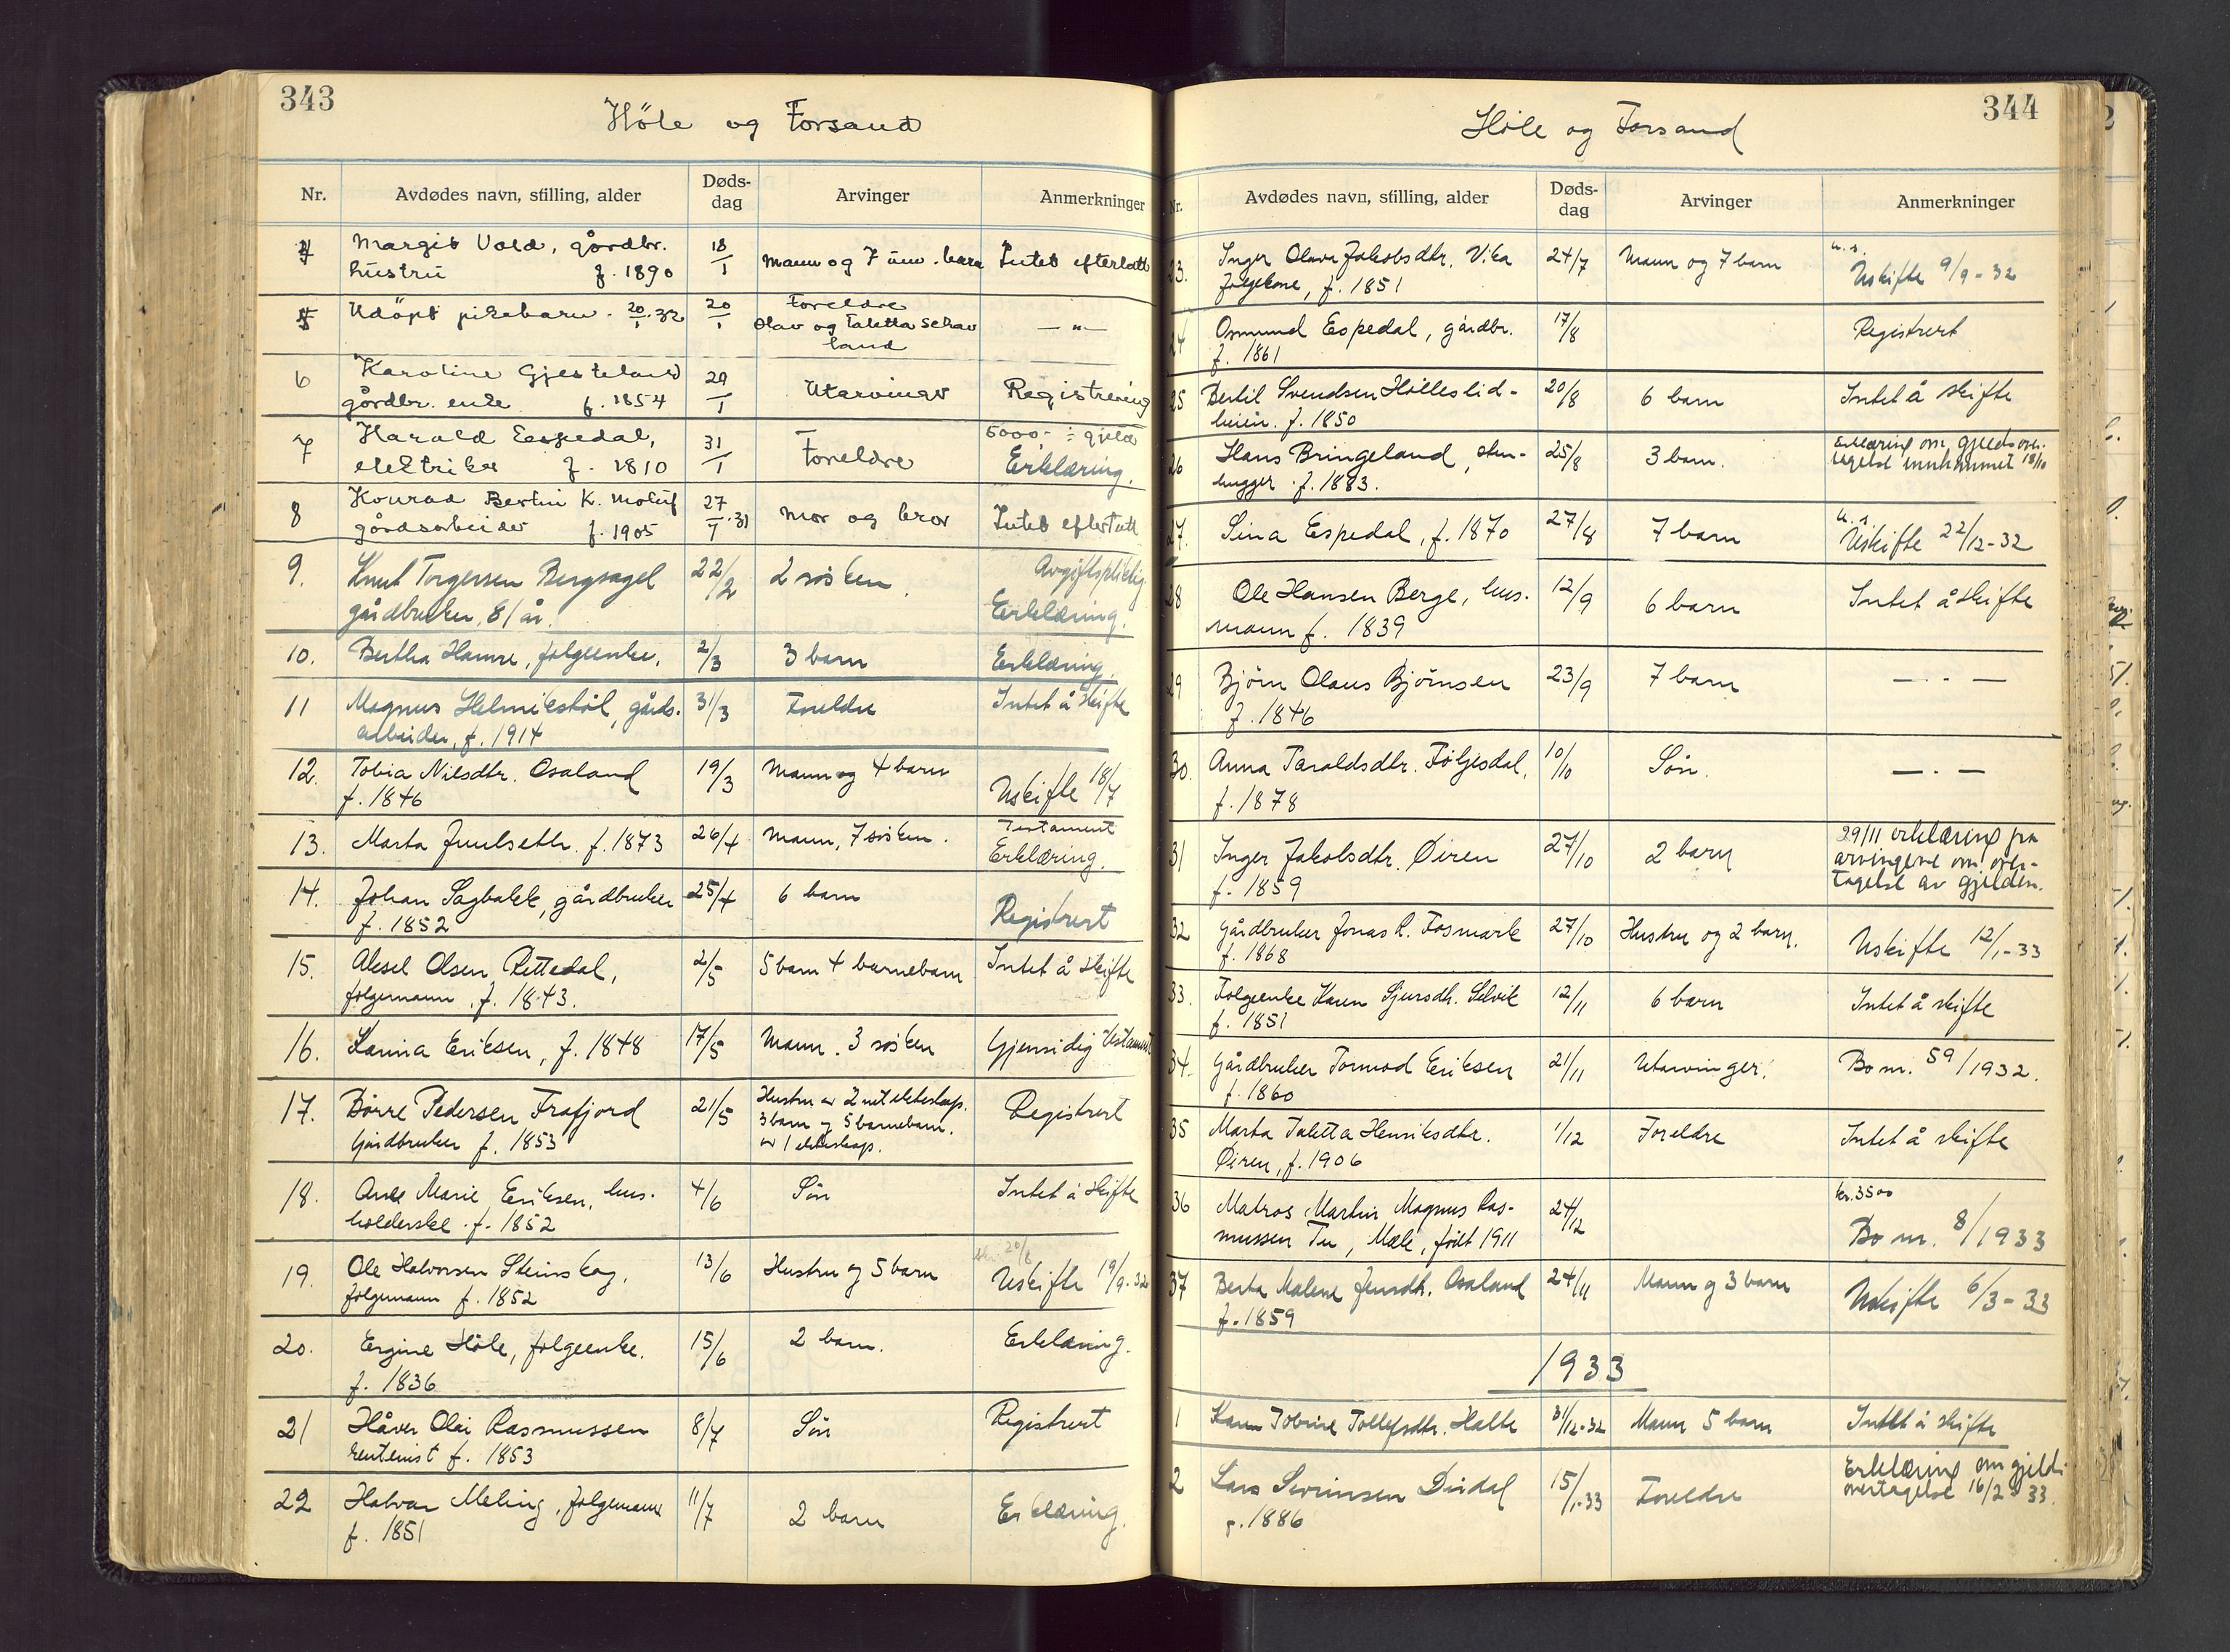 343
Höle og Forsand
Nr. Avdødes navn, stilling, alder Døds-dag Arvinger Anmerkninger
4 Margit Vold, gårdbr. 18/1 Mann og 7 um. barn Intet efterlatt
hustru f. 1890
5 Udöpt pikebarn. 20/1.32 20/1 Foreldre — " —
Olav og Taletta Schav
land
6 Karoline Gjesteland 29/1 Utarvinger Registrering
gårdbr. enke f. 1854
7 Harald Espedal, 31/1 Foreldre 5000,- ÷ gjeld
elektriker f. 1810 Erklæring.
8 Konrad Bertin K. 27/1.31 Mor og bror Intet efterlatt
gårdsarbeider f. 1905
9. Knut Torgersen Bergsagel 22/2 2 søsken. Avgiftspliktig
gårdbruker, 81 år. Erklæring.
10. Bertha Hamre, følgeenke, 2/3 3 barn Erklæring.
11 Magnus Helmikstøl, gårds- 31/3 Foreldre Intet å skifte
arbeider, f. 1914
12. Tobia Nilsdtr. Osaland 19/3 Mann og 4 barn Uskifte 18/7
f. 1846
13. Marta Juulsdtr. f. 1873 26/4 Mann, 7 søsken. Testament
Erklæring.
14. Johan Sagbakk, gårdbruker 25/4 6 barn Registrert
f. 1852
15. Aksel Olsen Rettedal, 2/5 5 barn 4 barnebarn Intet å skifte
følgemann, f. 1843.
16. Karina Eriksen, f. 1848 17/5 Mann. 3 søsken Gjensidig testament
17. Børre Pedersen Frafjord 21/5 Hustru av 2net ekteskap. Registrert
Gårdbruker f. 1853 3 barn og 5 barnebarn.
av 1 ekteskap.
18. Ane Marie Eriksen, hus- 4/6 Søn Intet å skifte
holderske. f. 1852
19. Ole Halvorsen Steinskog, 13/6 Hustru og 5 barn 20/8
følgemann f. 1852 Uskifte 19/9-32
20. Ergine Höle, følgeenke. 15/6 2 barn. Erklæring.
f. 1836
21 Håver Olai Rasmussen 8/7 Søn Registrert
rentenist f. 1853
22 Halvar Meling, følgemann 11/7 2 barn Erklæring.
f. 1851
344
Höle og Forsand
Nr. Avdødes navn, stilling, alder Døds-dag Arvinger Anmerkninger
23. Inger Olava Jakobsdtr. Vika 24/7 Mann og 7 barn u.s.
følgekone, f. 1851 Uskifte 9/9-32
24 Osmund Espedal, gårdbr. 17/8 Registrert
f. 1861
25 Bertil Svendsen Hølleslid- 20/8 6 barn Intet å skifte
heien. f. 1850
26 Hans Bringeland, sten- 25/8 3 barn. Erklæring om gjeldsover-
hugger. f. 1883. tagelse innkommet 18/10
27. Sina Espedal, f. 1870 27/8 7 barn u.s.
Uskifte 22/12-32
28 Ole Hansen Berge, hus- 12/9 6 barn Intet å skifte
mann f. 1839
29 Bjørn Olaus Bjørnsen 23/9 7 barn — . . —
f. 1846
30. Anna Taraldsdtr. Følgesdal, 10/10 Søn. — . —
f. 1878
31 Inger Jakobsdtr. Øiren 27/10 2 barn 29/11 erklæring fra
f. 1859 arvingene om over-
tagelse av gjelden.
32 Gårdbruker Jonas R. Fosmark 27/10 Hustru og 2 barn. Uskifte 12/1-33
f. 1868
33. Følgeenke Karen Sjursdtr. Selvik 12/11 6 barn Intet å skifte
f. 1851
34. Gårdbruker Tormod Eriksen 21/11 Utarvinger. Bo nr. 59/1932.
f. 1860
35 Marta Taletta Henriksdtr. 1/12 Foreldre Intet å skifte
Øiren, f. 1906
36 Matros Martin Magnus Ras- 24/12 kr. 3500
mussen Tu, Mæle, født 1911 Bo nr. 8/1933
37 Berta Malene Jensdtr. Osaland 24/11 Mann og 3 barn Uskifte 6/3-33
f. 1859
1933
1 Karen Tobine Tollefsdtr. Halle 31/12-32 Mann 5 barn Intet å skifte
2 Lars Sørinsen Dirdal 15/1-33 Foreldre Erklæring om gjelds-
f. 1886 overtagelse 16/2-33.